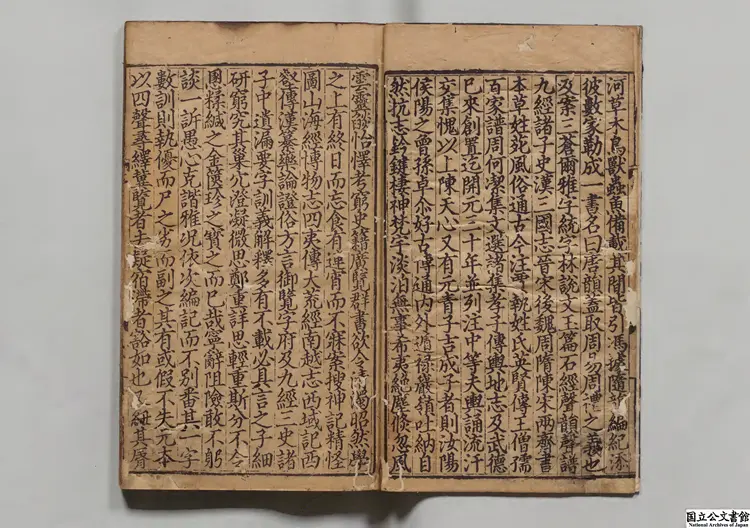 河草木鳥獸蟲魚備載其間皆引馮據隨韻編紀添
彼數家勒成一書名曰唐韻蓋取周易周禮之義也
及案三蒼爾雅字統字林說文玉篇石經聲韻聲譜
九經諸子史漢三國志晉宋後魏周隋陳宋兩齊書
本草姓菀風俗通古今注賈執姓氏英賢傳王僧孺
百家譜周何潔集文選諸集孝子傳輿地志及武德
已來創置迄開元三十年並列注中等夫輿誦流汗
交集愧以上陳天心又有元青子吉成子者則汝陽
侯陽之曾孫卓尒好古博通內外遁祿巖嶺吐納自
然抗志鈴鍵棲神梵宇淡泊無事希夷絕塵倏忽風
雲靈皷怡懌考窮史籍廣覽群書欲令清濁昭然學
之上有終日而忘食有連宵而不寐案搜神記精怪
圖山海經博物志四夷傳大荒經南越志西域記西
壑傳漢纂藥論證俗方言御覽字府及九經三史諸
子中遺漏要字訓義解釋多有不載必具言之子細
研窮究其巢穴澄凝微思鄭重詳思輕重斯分不令
慁糅緘之金篋珍之寶之而已哉寧辭阻險敢不躬
談一訴愚心克諧雅況依次編記而不別番其一字
數訓則執優而尸之劣而副之其有或假不失元本
以四聲尋繹冀覽者去疑宿滯者豁如也又紐其脣
国立公文書館
National Archives of Japan